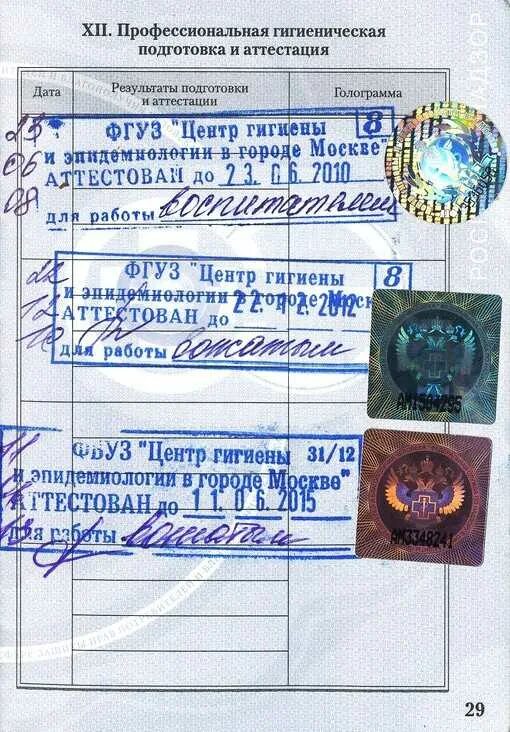 XII. Профессиональная гигиеническая
подготовка и аттестация
Дата
Результаты подготовки
и аттестации
Голограмма
23
06
08
ФГУЗ "Центр гигиены 8
и эпидемиологии в городе Москве"
АТТЕСТОВАН до 23.06.2010
для работы воспитателем
22
12
10
ФГУЗ "Центр гигиены 8
и эпидемиологии в городе Москве
АТТЕСТОВАН до 22.12.2012
для работы вожатым
АМ1584295
11
ФБУЗ "Центр гигиены 31/12
и эпидемиологии в городе Москве"
АТТЕСТОВАН до 11.06.2015
для работы вожатым
АМ3348241
29